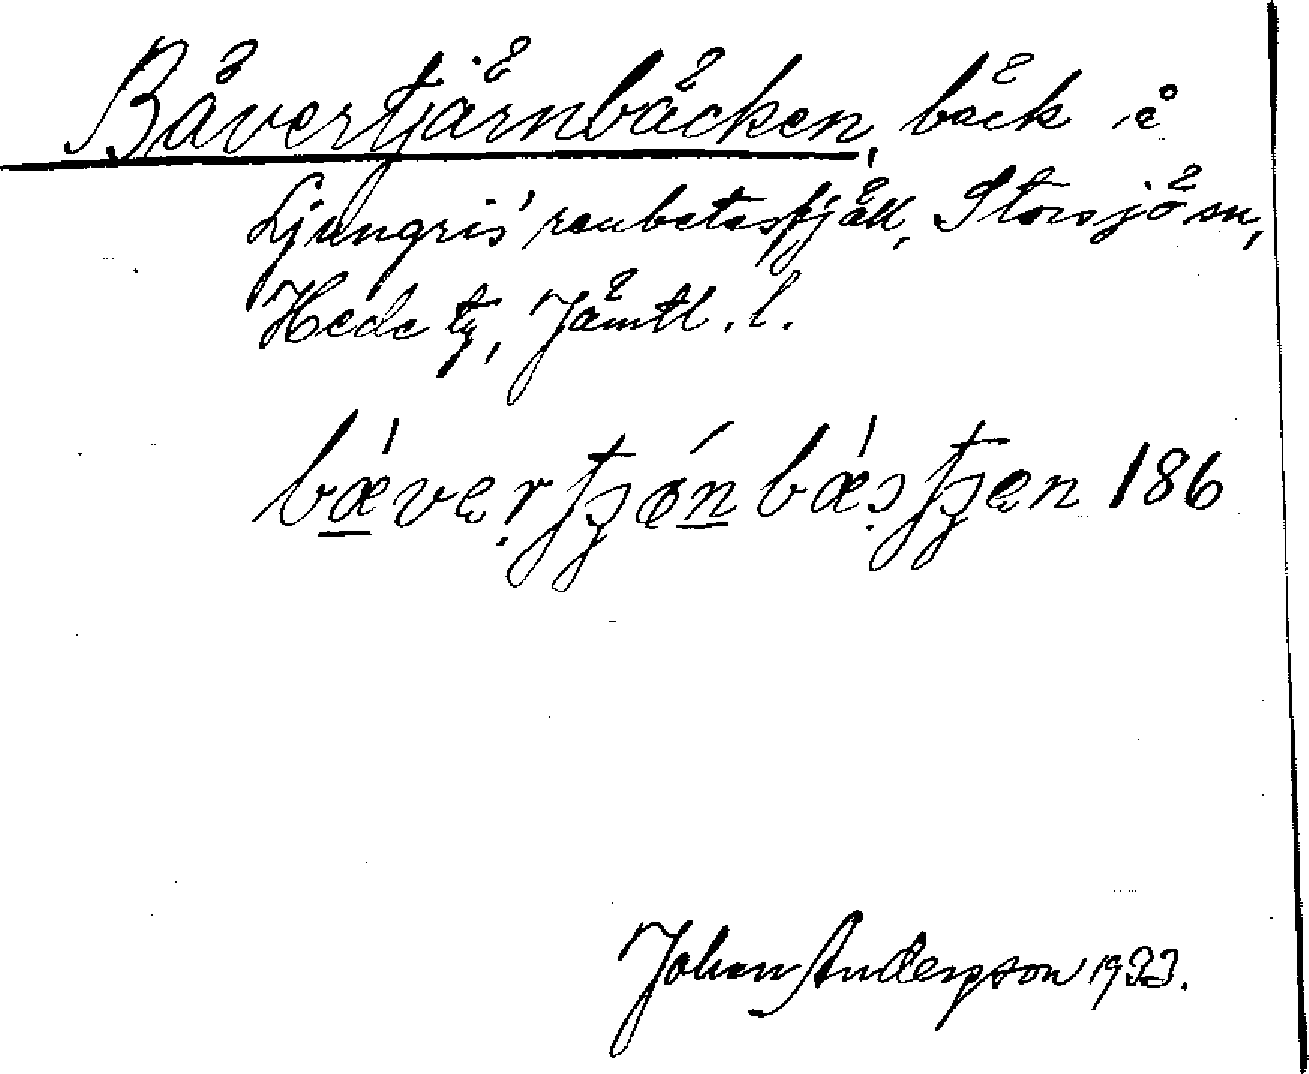 Bävertjärnbäcken, bäck i
Ljungris' renbetesfjäll, Storsjö sn,
Hede tg, Jämtl. l.
bæver tjøn bæstjen 186
Johan Anderson 1933.